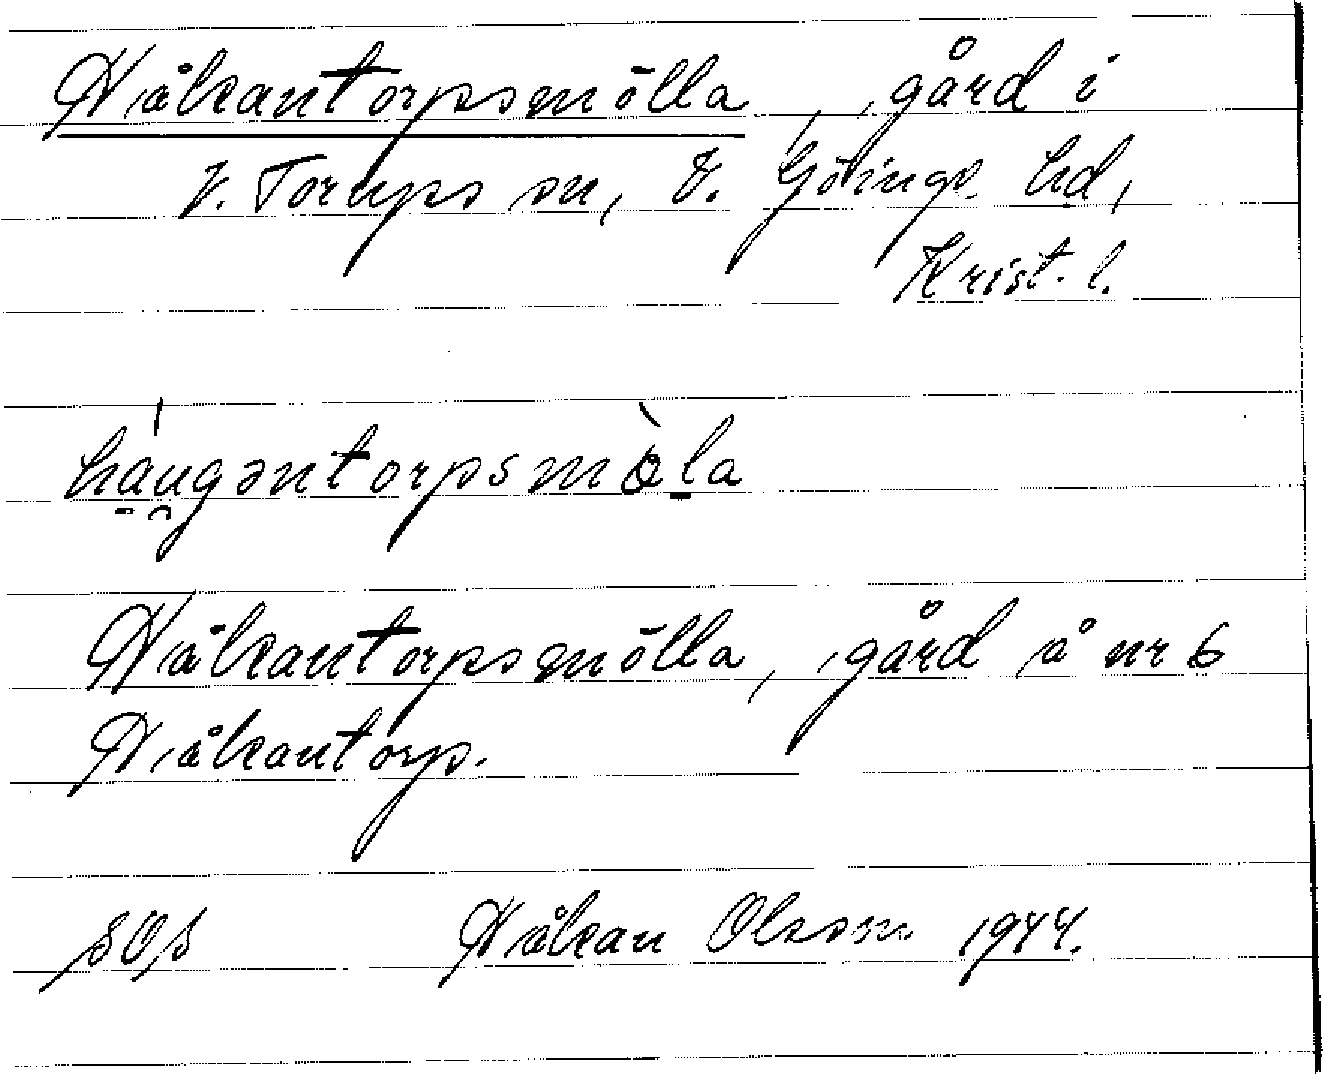 Håkantorpsmölla, gård i
V. Torups sn, V. Göinge hd,
Krist. l.
háu̯gəntorpsmö̀la
Håkantorpsmölla, gård å nr 6
Håkantorp.
SOS Håkan Olsson 1944.